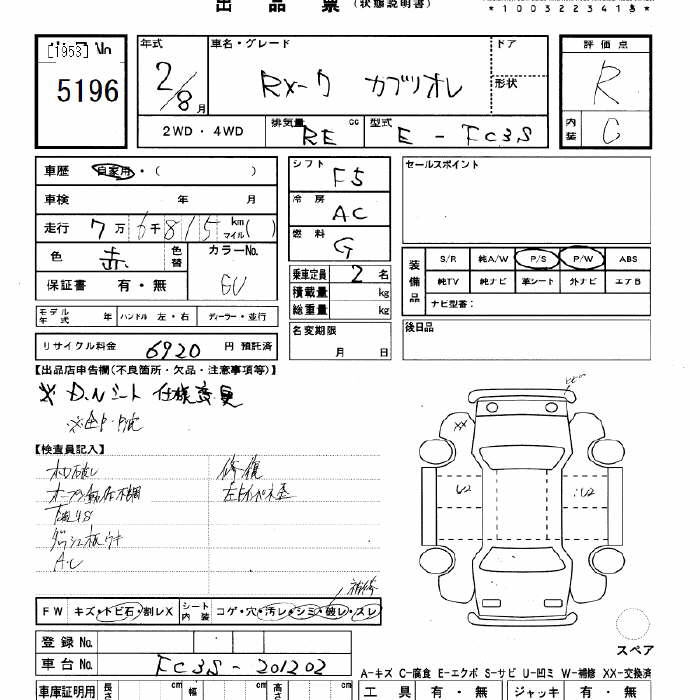 出 品 票 (状態説明書)
*1003223413*
[1953] No
5196
年式
2/8月
車名・グレード
RX-7 カブリオレ
ドア
形状
評価点
R
内装
C
2WD・4WD
排気量 cc
RE
型式
E - FC3S
車歴 自家用・( )
車検 年 月
走行 7万6千815 km マイル( )
色 赤 色替
カラーNo.
GU
保証書 有・無
モデル年式 年 ハンドル 左・右 ディーラー・並行
リサイクル料金 6920 円 預託済
シフト F5
冷房 AC
燃料 G
乗車定員 2 名
積載量 kg
総重量 kg
名変期限
月 日
セールスポイント
装備品
S/R 純A/W P/S P/W ABS
純TV 純ナビ 革シート 外ナビ エアB
ナビ型番:
後日品
【出品店申告欄(不良箇所・欠品・注意事項等)】
【検査員記入】
修復
FW キズ・トビ石・割レX シート内装 コゲ・穴・汚レ・シミ・破レ・スレ
補修
XX
U2
U2
スペア
登録 No.
車台 No. FC3S-201202
A-キズ C-腐食 E-エクボ S-サビ U-凹ミ W-補修 XX-交換済
車庫証明用 長さ cm 幅 cm 高さ cm
工具 有・無 ジャッキ 有・無